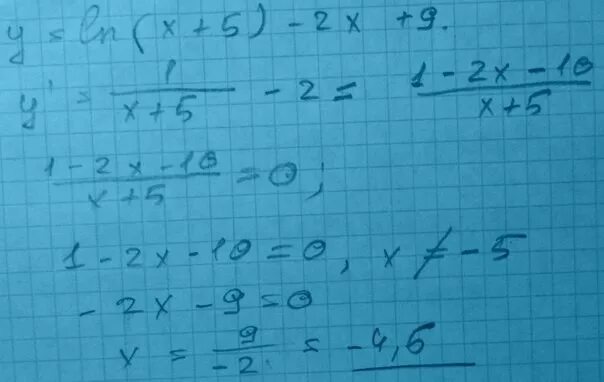 y = ln(x+5) - 2x + 9.
y' = 1/(x+5) - 2 = (1 - 2x - 10)/(x+5)
(1 - 2x - 10)/(x+5) = 0;
1 - 2x - 10 = 0, x ≠ -5
- 2x - 9 = 0
x = 9/(-2) = -4,5